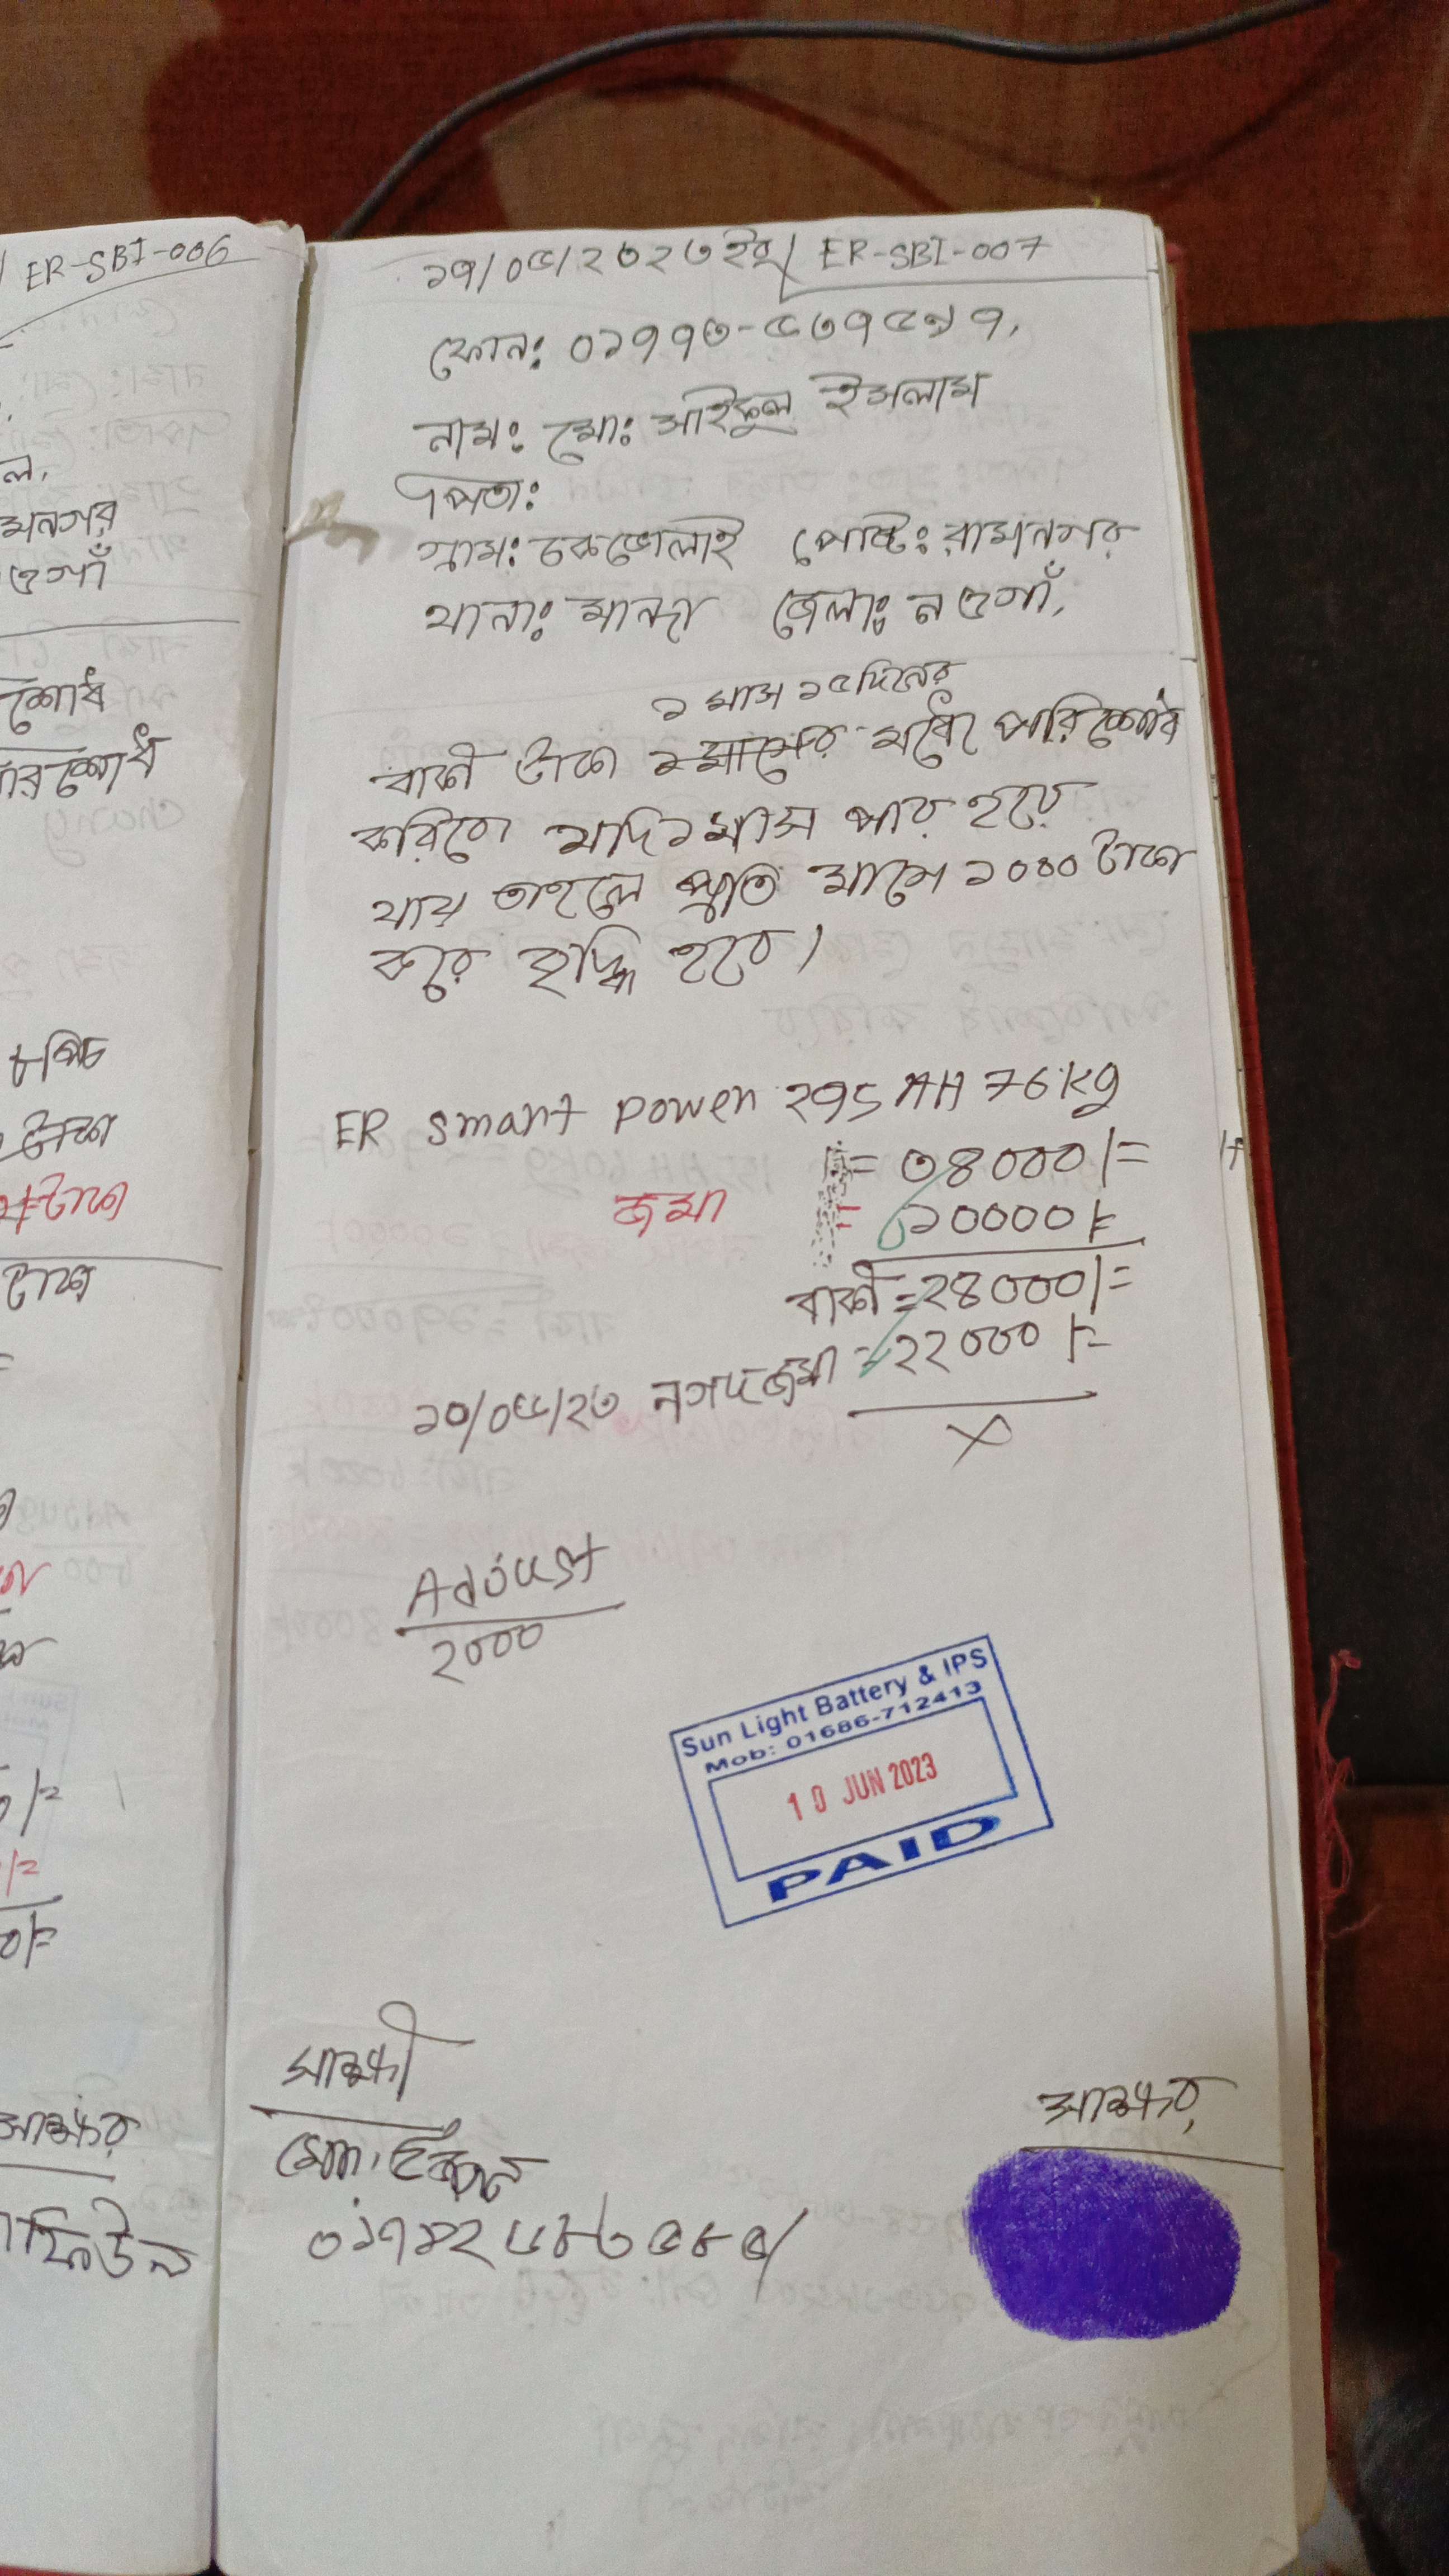 ER-SBI-006
মনগর
ওগাঁ
শোধ
টাকা
টাকা
স্বাক্ষর
১৭/০৫/২০২৩ইং ER-SBI-007
ফোন: ০১৭৭৩-৫৩৭৫৯৭,
নাম: মো: সাইফুল ইসলাম
পিতা:
গ্রাম: চকভোলাই পোষ্ট: রামনগর
থানা: মান্দা জেলা: নওগাঁ,
১ মাস ১৫ দিনের
বাকী টাকা ১মাসের মধ্যে পরিশোধ
করিবো যদি ১মাস পার হয়ে
যায় তাহলে প্রতি মাসে ১০০০ টাকা
করে বৃদ্ধি হবে।
ER Smart Power 295 AH 76kg
= ৩৪০০০/=
জমা = ১০০০০/=
বাকী = ২৪০০০/=
১০/০৬/২৩ নগদ জমা = ২২০০০/=
X
Adjust
2000
Sun Light Battery & IPS
Mob: 01686-712413
10 JUN 2023
PAID
সাক্ষী
স্বাক্ষর